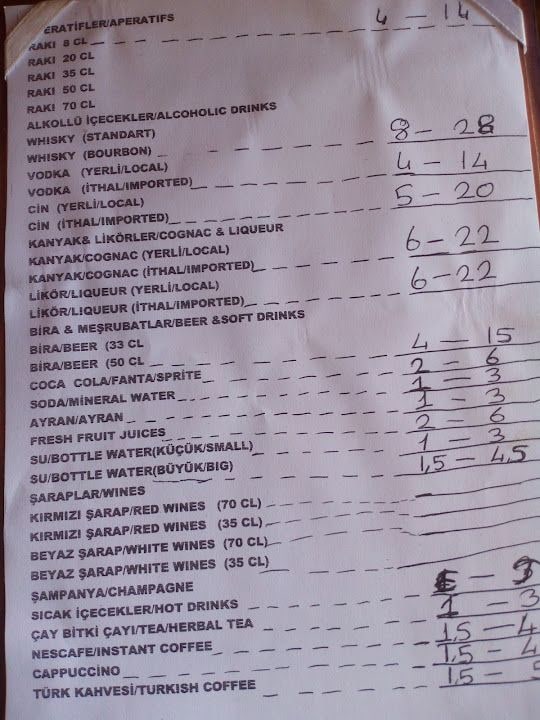 ERATİFLER/APERATIFS
RAKI 8 CL 4 - 14
RAKI 20 CL
RAKI 35 CL
RAKI 50 CL
RAKI 70 CL
ALKOLLÜ İÇECEKLER/ALCOHOLIC DRINKS
WHISKY (STANDART)
WHISKY (BOURBON) 8 - 28
VODKA (YERLİ/LOCAL)
VODKA (İTHAL/IMPORTED) 4 - 14
CİN (YERLİ/LOCAL)
CİN (İTHAL/IMPORTED) 5 - 20
KANYAK& LİKÖRLER/COGNAC & LIQUEUR
KANYAK/COGNAC (YERLİ/LOCAL)
KANYAK/COGNAC (İTHAL/IMPORTED) 6 - 22
LİKÖR/LIQUEUR (YERLİ/LOCAL)
LİKÖR/LIQUEUR (İTHAL/IMPORTED) 6 - 22
BİRA & MEŞRUBATLAR/BEER &SOFT DRINKS
BİRA/BEER (33 CL
BİRA/BEER (50 CL 4 - 15
COCA COLA/FANTA/SPRİTE 2 - 6
SODA/MİNERAL WATER 1 - 3
AYRAN/AYRAN 1 - 3
FRESH FRUIT JUICES 2 - 6
SU/BOTTLE WATER(KÜÇÜK/SMALL) 1 - 3
SU/BOTTLE WATER(BÜYÜK/BIG) 1,5 - 4,5
ŞARAPLAR/WINES
KIRMIZI ŞARAP/RED WINES (70 CL)
KIRMIZI ŞARAP/RED WINES (35 CL)
BEYAZ ŞARAP/WHITE WINES (70 CL)
BEYAZ ŞARAP/WHITE WINES (35 CL)
ŞAMPANYA/CHAMPAGNE
SICAK İÇECEKLER/HOT DRINKS
ÇAY BİTKİ ÇAYI/TEA/HERBAL TEA 1 - 3
NESCAFE/INSTANT COFFEE 1,5 - 4
CAPPUCCİNO 1,5 - 4
TÜRK KAHVESİ/TURKISH COFFEE 1,5 - 5